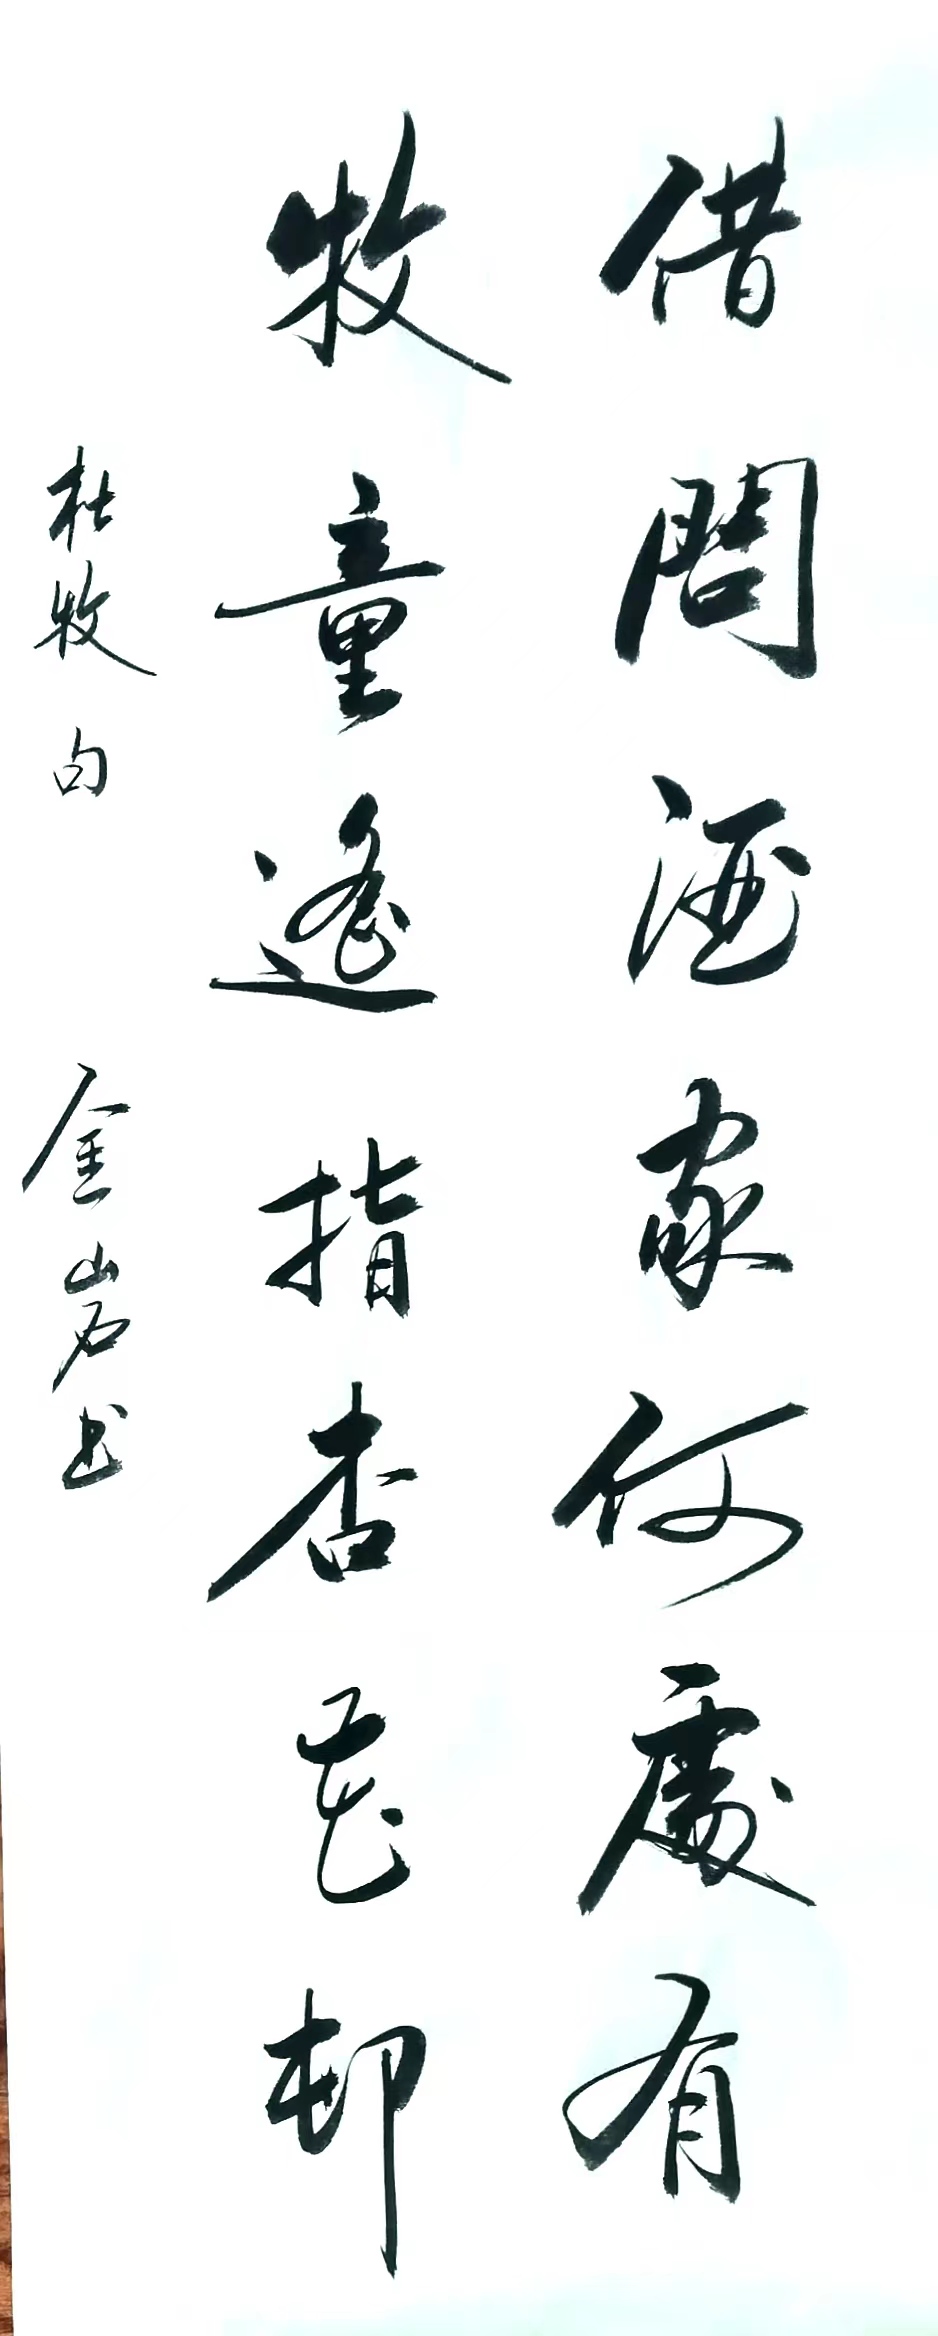 借問酒家何處有
牧童遙指杏花邨
杜牧句 金山岩书